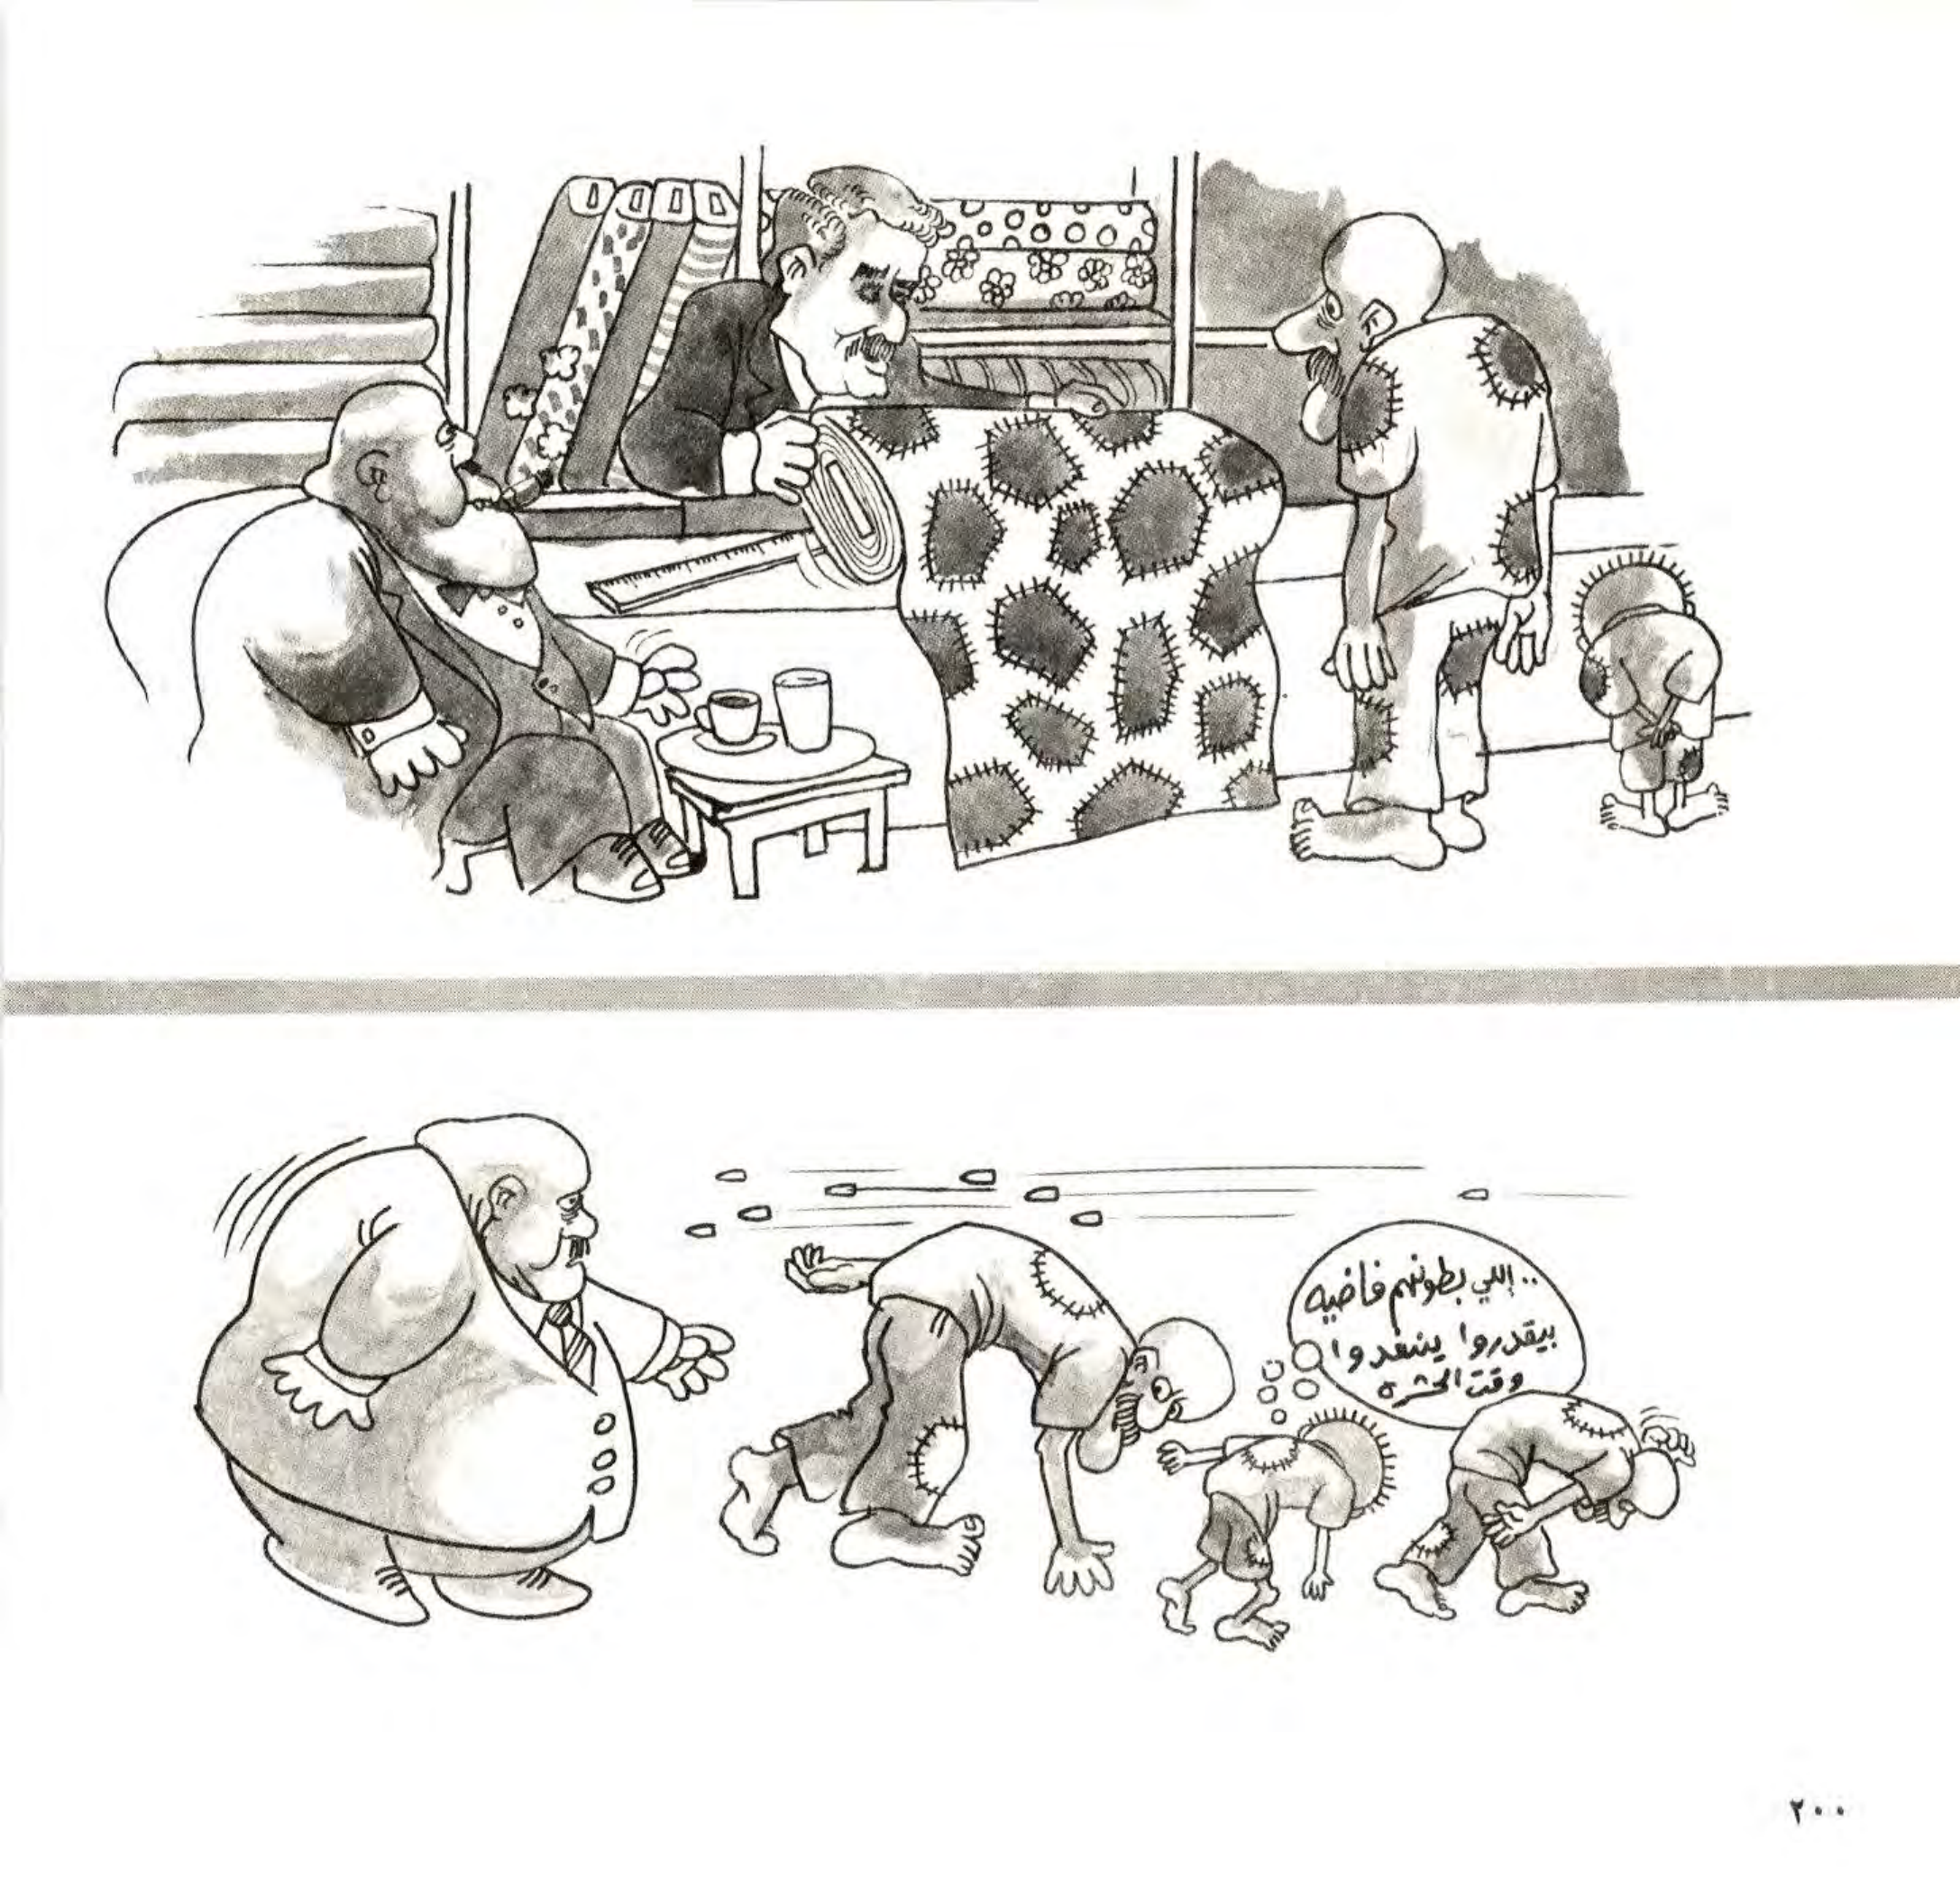 .. اللي بطونهم فاضيه
بيقدروا ينفدوا
وقت الحشره
٢٠٠